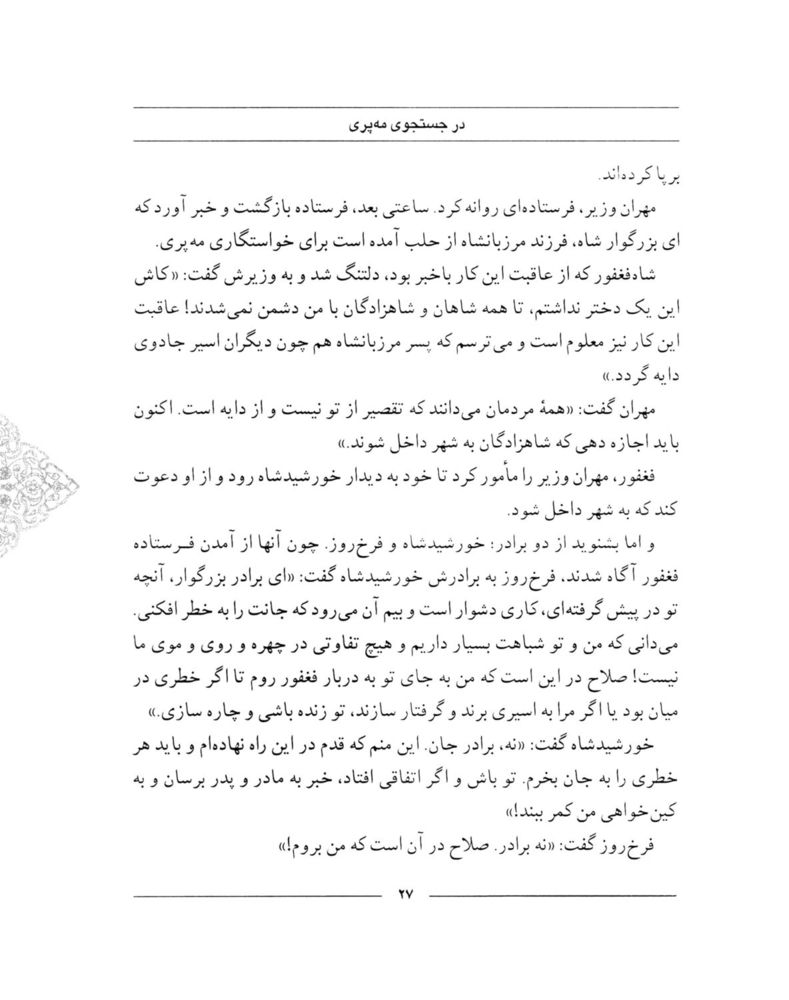 در جستجوی مه‌پری
برپا کرده‌اند.
مهران وزیر، فرستاده‌ای روانه کرد. ساعتی بعد، فرستاده بازگشت و خبر آورد که
ای بزرگوار شاه، فرزند مرزبانشاه از حلب آمده است برای خواستگاری مه‌پری.
شاه‌فغفور که از عاقبت این کار باخبر بود، دلتنگ شد و به وزیرش گفت: «کاش
این یک دختر نداشتم، تا همه شاهان و شاهزادگان با من دشمن نمی‌شدند! عاقبت
این کار نیز معلوم است و می‌ترسم که پسر مرزبانشاه هم چون دیگران اسیر جادوی
دایه گردد.»
مهران گفت: «همهٔ مردمان می‌دانند که تقصیر از تو نیست و از دایه است. اکنون
باید اجازه دهی که شاهزادگان به شهر داخل شوند.»
فغفور، مهران وزیر را مأمور کرد تا خود به دیدار خورشیدشاه رود و از او دعوت
کند که به شهر داخل شود.
و اما بشنوید از دو برادر: خورشیدشاه و فرخ‌روز. چون آنها از آمدن فرستاده
فغفور آگاه شدند، فرخ‌روز به برادرش خورشیدشاه گفت: «ای برادر بزرگوار، آنچه
تو در پیش گرفته‌ای، کاری دشوار است و بیم آن می‌رود که جانت را به خطر افکنی.
می‌دانی که من و تو شباهت بسیار داریم و هیچ تفاوتی در چهره و روی و موی ما
نیست! صلاح در این است که من به جای تو به دربار فغفور روم تا اگر خطری در
میان بود یا اگر مرا به اسیری برند و گرفتار سازند، تو زنده باشی و چاره سازی.»
خورشیدشاه گفت: «نه، برادر جان. این منم که قدم در این راه نهاده‌ام و باید هر
خطری را به جان بخرم. تو باش و اگر اتفاقی افتاد، خبر به مادر و پدر برسان و به
کین‌خواهی من کمر ببند!»
فرخ‌روز گفت: «نه برادر. صلاح در آن است که من بروم!»
۲۷